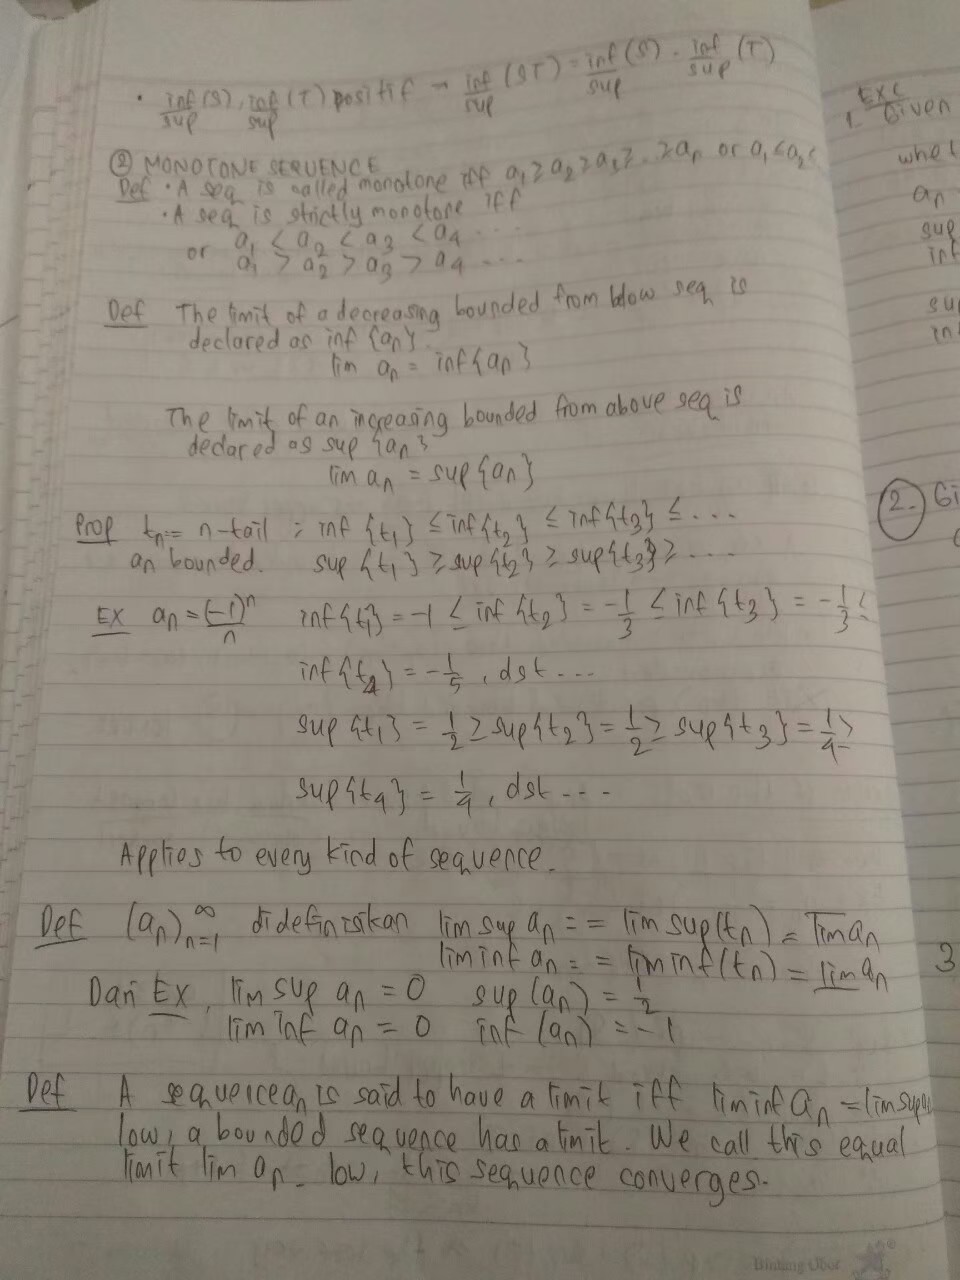 • inf/sup (S), inf/sup (T) positif → inf/sup (ST) = inf/sup (S) . inf/sup (T)
② MONOTONE SEQUENCE
Def • A seq is called monotone iff a₁ ≥ a₂ ≥ a₃ ≥ .. ≥ aₙ or a₁ ≤ a₂ ≤
• A seq is strictly monotone iff
a₁ < a₂ < a₃ < a₄ ...
or a₁ > a₂ > a₃ > a₄ ...
Def The limit of a decreasing bounded from blow seq is
declared as inf {aₙ}.
lim aₙ = inf{aₙ}
The limit of an increasing bounded from above seq is
declared as sup {aₙ}
lim aₙ = sup{aₙ}
Prop tₙ := n-tail ; inf {t₁} ≤ inf{t₂} ≤ inf{t₃} ≤ ...
aₙ bounded. sup {t₁} ≥ sup{t₂} ≥ sup{t₃} ≥ ...
EX aₙ = (-1)ⁿ/n inf{t₁} = -1 ≤ inf {t₂} = -1/3 ≤ inf {t₃} = -1/3 ≤
inf {t₄} = -1/5 , dst ...
sup {t₁} = 1/2 ≥ sup{t₂} = 1/2 ≥ sup {t₃} = 1/4 ≥
sup{t₄} = 1/4 , dst ...
Applies to every kind of sequence.
Def (aₙ)ₙ₌₁^∞ didefinisikan lim sup aₙ := = lim sup(tₙ) = l̅i̅m̅ aₙ
lim inf aₙ := = lim inf (tₙ) = l̲i̲m̲ aₙ
Dari EX, lim sup aₙ = 0 sup (aₙ) = 1/2
lim inf aₙ = 0 inf (aₙ) = -1
Def A sequence aₙ is said to have a limit iff lim inf aₙ = lim sup aₙ
low, a bounded sequence has a limit. We call this equal
limit lim aₙ. low, this sequence converges.
EXC
1. Given
whe
aₙ
sup
inf
su
in
2. Gi
3
Bintang Obor